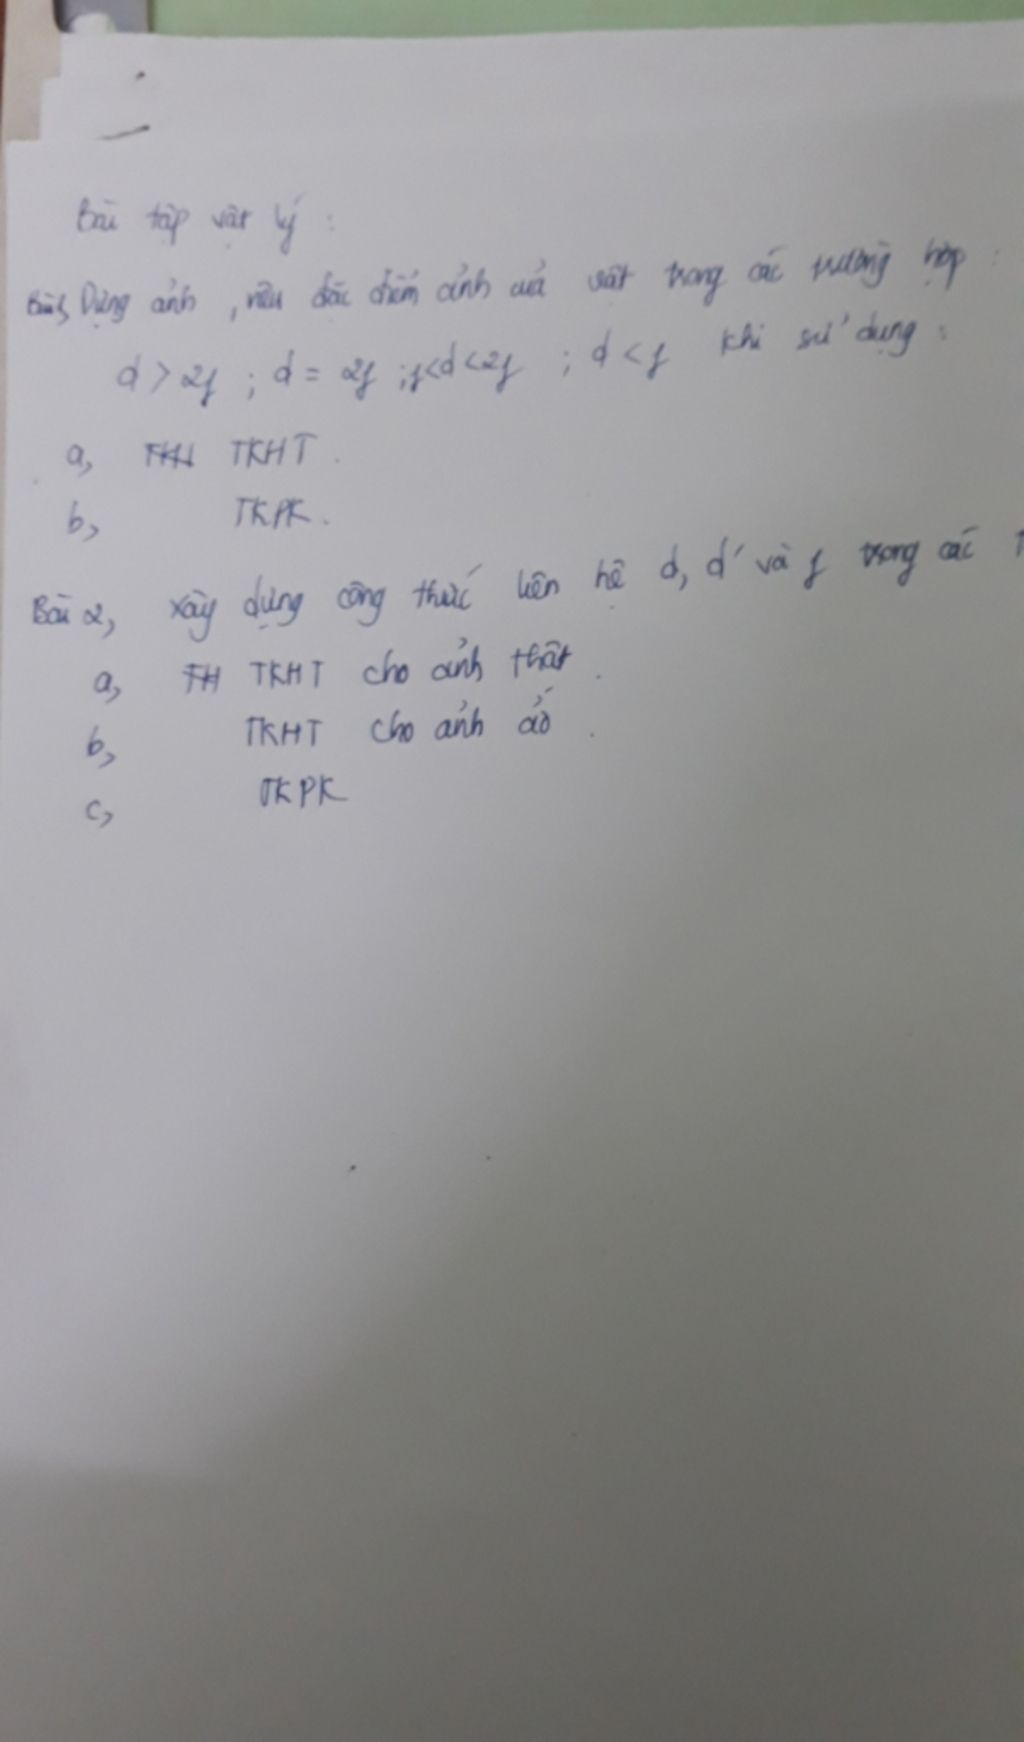 Bài tập vật lý :
Bài 1, Dựng ảnh , nêu đặc điểm ảnh của vật trong các trường hợp :
d > 2f ; d = 2f ; f<d<2f ; d < f khi sử dụng :
a, TKHT .
b, TKPK .
Bài 2, xây dựng công thức liên hệ d, d' và f trong các
a, TH TKHT cho ảnh thật .
b, TKHT cho ảnh ảo .
c, TKPK